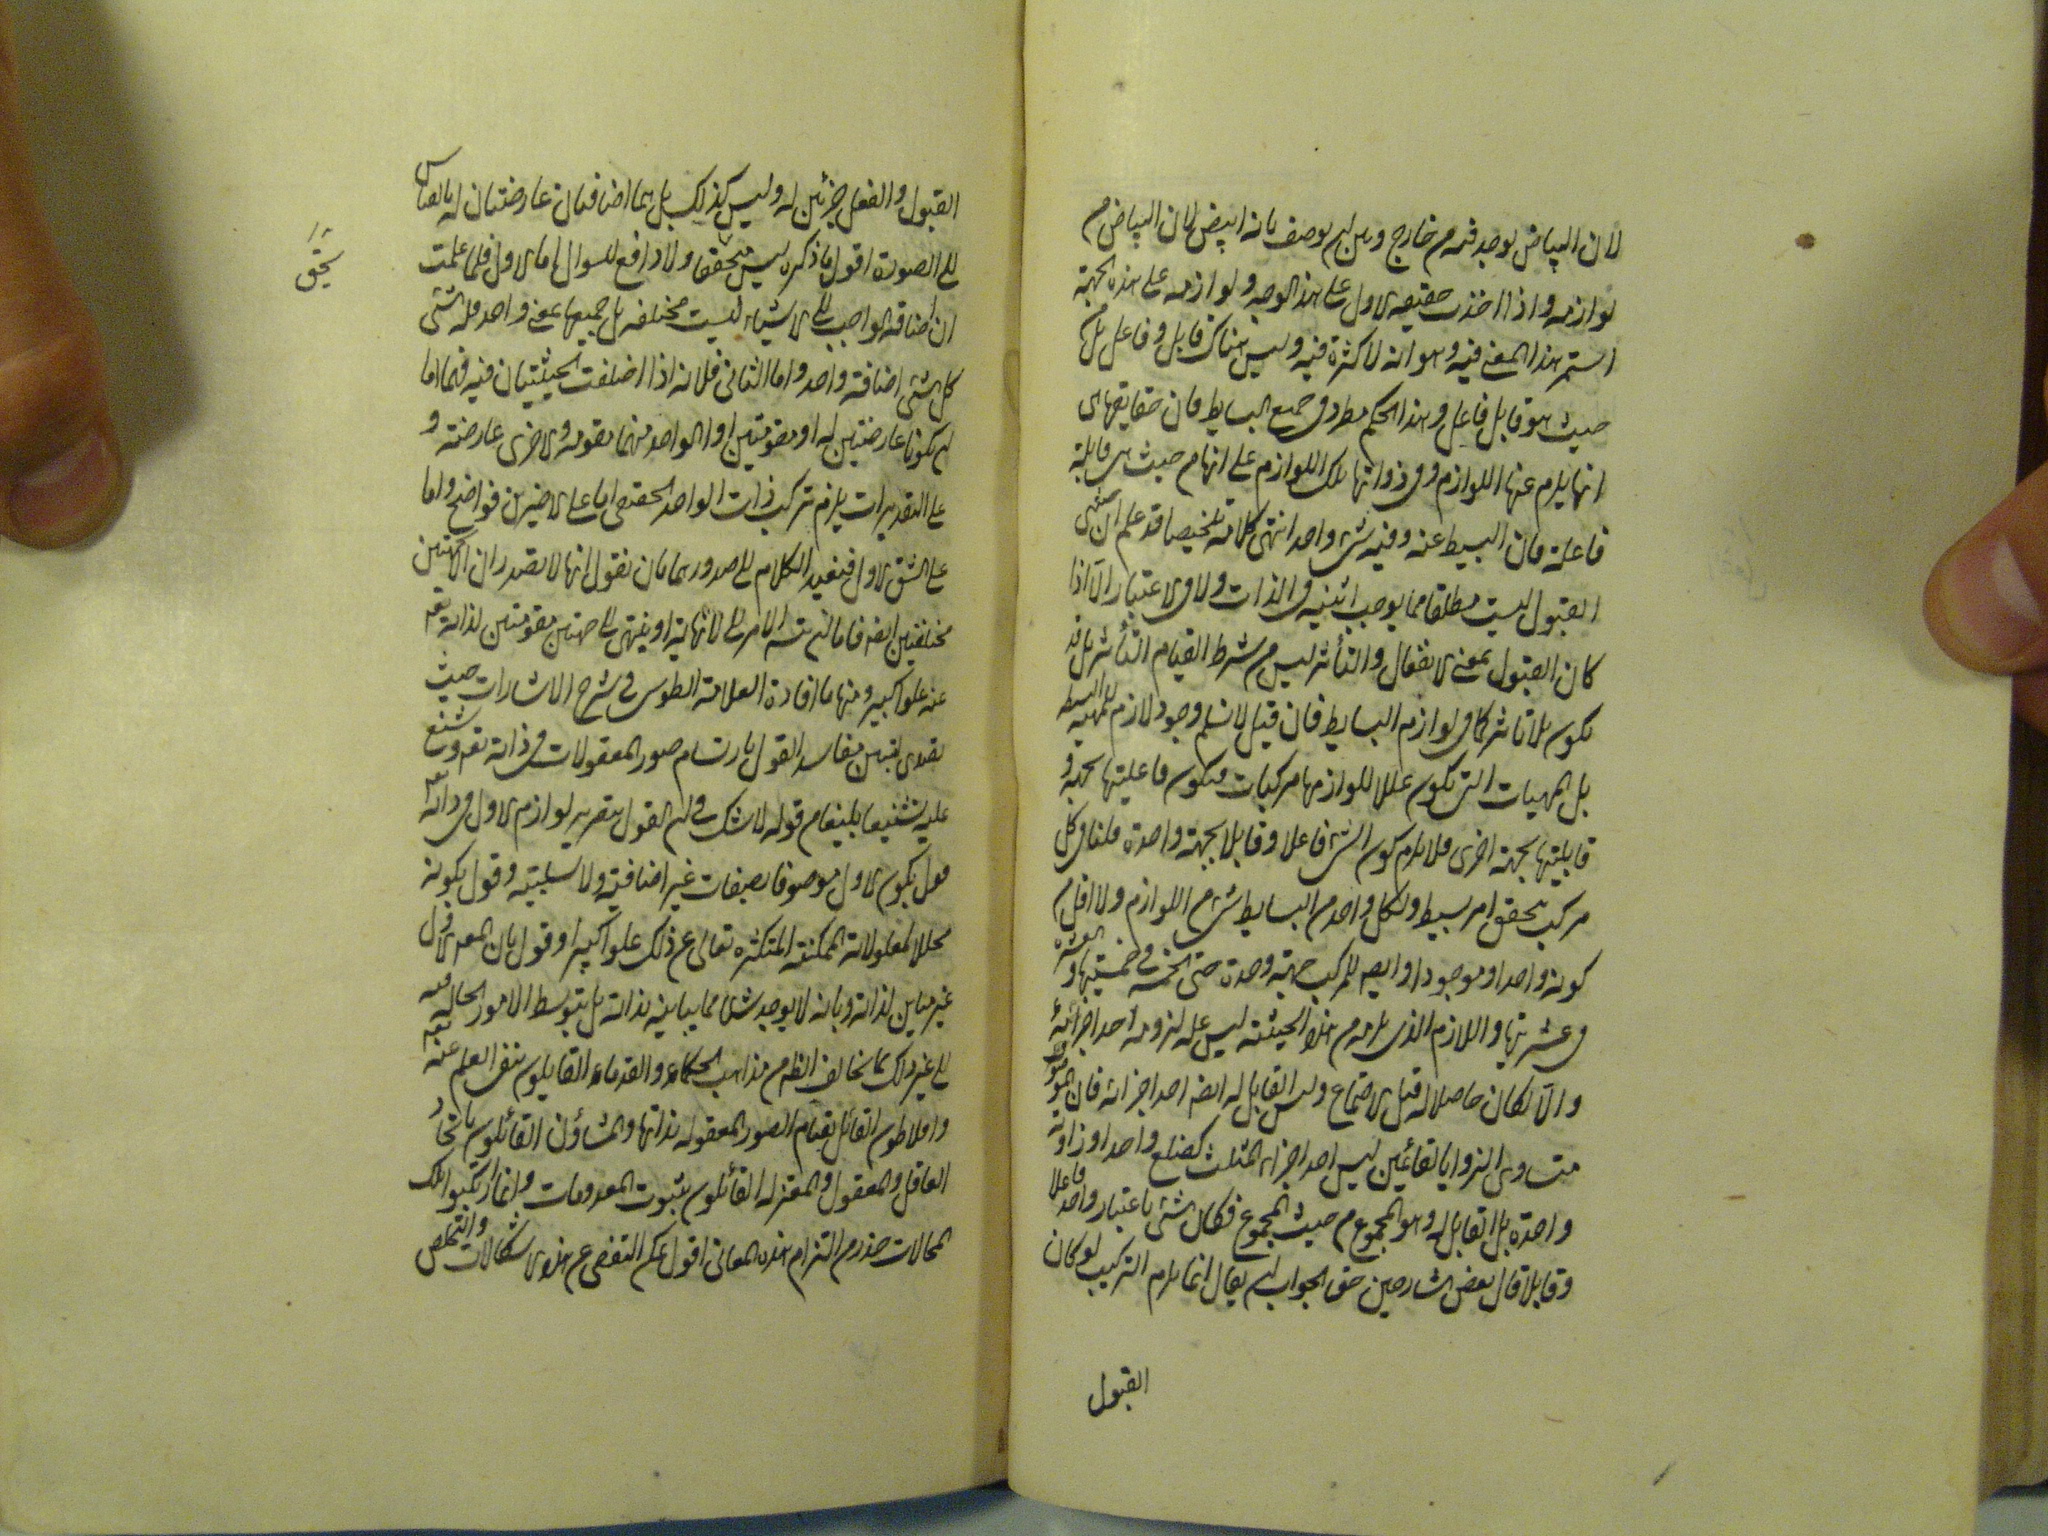 لان البياض يوجد فيه من خارج وبين ان يوصف بانه ابيض لان البياض من
لوازمه واذا اخذت حقيقه الاول على هذا الوجه ولوازمه على هذه الجهة
استمر هذا المعنى فيه وهو انه لا كثرة فيه وليس هناك قابل وفاعل بل من
حيث هو قابل فاعل وهذا الحكم مطرد فى جميع البسايط فان حقايقها هى
انها يلزم عنها اللوازم وفى ذواتها تلك اللوازم على انها من حيث هى قابلة
فاعلة فان البسيط عنه وفيه شئ واحد انتهى كلامه تلخيصا فقد علم ان
القبول ليست مطلقا مما يوجب اثنينيه فى الذات ولا فى الاعتبار الا اذا
كان القبول بمعنى الانفعال والتأثر وليس من شرط القيام التأثر بل قد
يكون بلا تاثر كما فى لوازم البسايط فان قيل لا نسلم وجود لازم للمهيه البسيطه
بل المهيات التى يكون عللا للوازمها مركبات فيكون فاعليتها بجهة و
قابليتها بجهة اخرى فلا يلزم كون الشئ فاعلا وقابلا بجهة واحدة قلنا فى كل
مركب يتحقق امر بسيط ولكل واحد من البسايط شئ من اللوازم ولا اقل من
كونه واحدا وموجودا وايضا للمركب جهة وحدة حتى الخمسه فى خمسيتها والعشره
فى عشريتها واللازم الذى يلزمه من هذه الحيثية ليس علة لزومه احد اجزائه
والا لكان حاصلا له قبل الاجتماع وليس القابل له ايضا احد اجزائه فان
متساوى الزوايا لقائمتين ليس احد اجزاء المثلث كضلع واحد او زاوية
واحدة بل القابل له هو المجموع من حيث المجموع فكان الشئ باعتبار واحد فاعلا
وقابلا قال بعض الشارحين حق الجواب ان يقال انما يلزم التركيب لو كان
القبول
القبول والفعل جزئين له وليس كذلك بل هما اضافتان عارضتان له بالقياس
الى الصورة اقول ما ذكره ليس بتحقيق ولا دافع للسوال اما الاول فلما علمت
ان اضافة الواجب الى الاشياء ليست مختلفه بل جميعها بمعنى واحد فله الى
كل شئ اضافة واحد واما الثانى فلانه اذا اختلفت الحيثيتان فيه فهما اما
ان يكونا عارضتين له او مقومتين او الواحد منهما مقومه والاخرى عارضته و
على التقديرات يلزم تركب ذات الواحد الحقيقى اما على الاخيرين فواضح واما
على الشق الاول فنعيد الكلام الى صدورهما بان نقول انها لا يصدران الا بجهتين
مختلفتين ايضا فاما ان يتسلسل الامر الى لا نهاية او ينتهى الى جهتين مقومتين لذاته تعالى
عنه علوا كبيرا ومنها ما افادة العلامة الطوسى فى شرح الاشارات حيث
تصدى لتبيين مفاسد القول بارتسام صور المعقولات فى ذاته تعالى وشنع
عليه تشنيعا بليغا من قوله لا شك فى ان القول بتقرير لوازم الاول فى ذاته
قول بكون الاول موصوفا بصفات غير اضافية ولا سلبيه وقول بكونه
محلا لمعلولاته الممكنة المتكثره تعالى عن ذلك علوا كبيرا وقول بان المعلول الاول
غير مباين لذاته وبانه لا يوجد شيئا مما يباينه بذاته بل بتوسط الامور الحاله فيه
الى غير ذلك مما يخالف الظاهر من مذاهب الحكماء والقدماء القايلون بنفى العلم عنه تعالى
وافلاطون القائل بقيام الصور المعقوله بذاتها والمشاؤن القائلون باتحاد
العاقل والمعقول والمعتزله القائلون بثبوت المعدومات وانما ارتكبوا تلك
المحالات حذرا من التزام هذه المعانى اقول يمكن التفصى عن هذه الاشكالات والتخلص